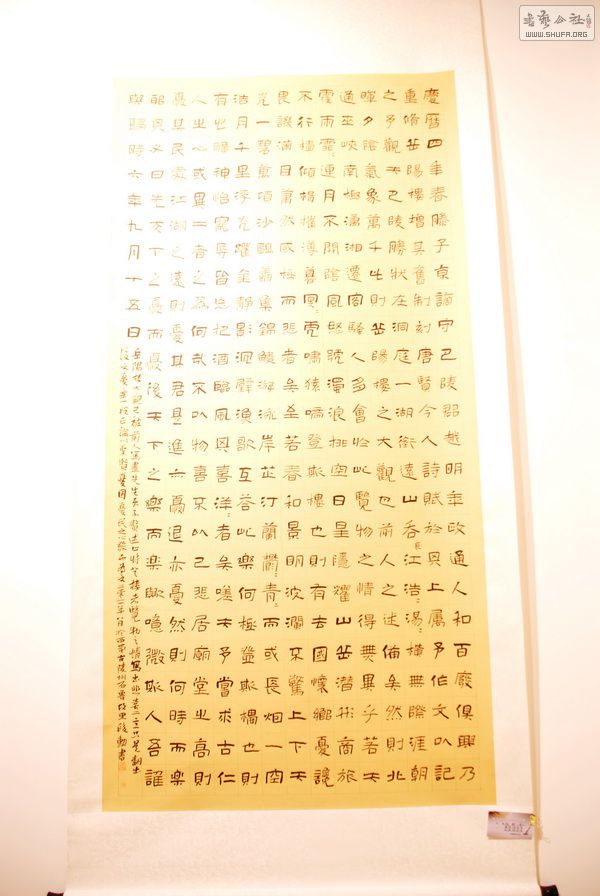 慶曆四年春滕子京謫守巴陵郡越明年政通人和百廢俱興乃
重脩岳陽樓增其舊制刻唐賢今人詩賦於其上屬予作文以記
之予觀夫巴陵勝狀在洞庭一湖銜遠山吞長江浩〻湯〻橫無際涯朝
暉夕陰氣象萬千此則岳陽樓之大觀也前人之述備矣然則北
通巫峽南極瀟湘遷客騷人多會於此覽物之情得無異乎若夫
霪雨霏〻連月不開陰風怒號濁浪排空日星隱耀山岳潛形商旅
不行檣傾楫摧薄暮冥〻虎嘯猿啼登斯樓也則有去國懷鄉憂讒
畏譏滿目蕭然感極而悲者矣至若春和景明波瀾不驚上下天
光一碧萬頃沙鷗翔集錦鱗游泳岸芷汀蘭鬱〻青〻而或長烟一空
浩月千里浮光躍金靜影沉璧漁歌互答此樂何極登斯樓也則
有心曠神怡寵辱皆忘把酒臨風其喜洋〻者矣嗟夫予嘗求古仁
人之心或異二者之為何哉不以物喜不以己悲居廟堂之高則
憂其民處江湖之遠則憂其君是進亦憂退亦憂然則何時而樂
耶其必曰先天下之憂而憂後天下之樂而樂歟噫微斯人吾誰
與歸時六年九月十五日
岳陽樓大觀已被前人寫盡
書藝公社
WWW.SHUFA.ORG